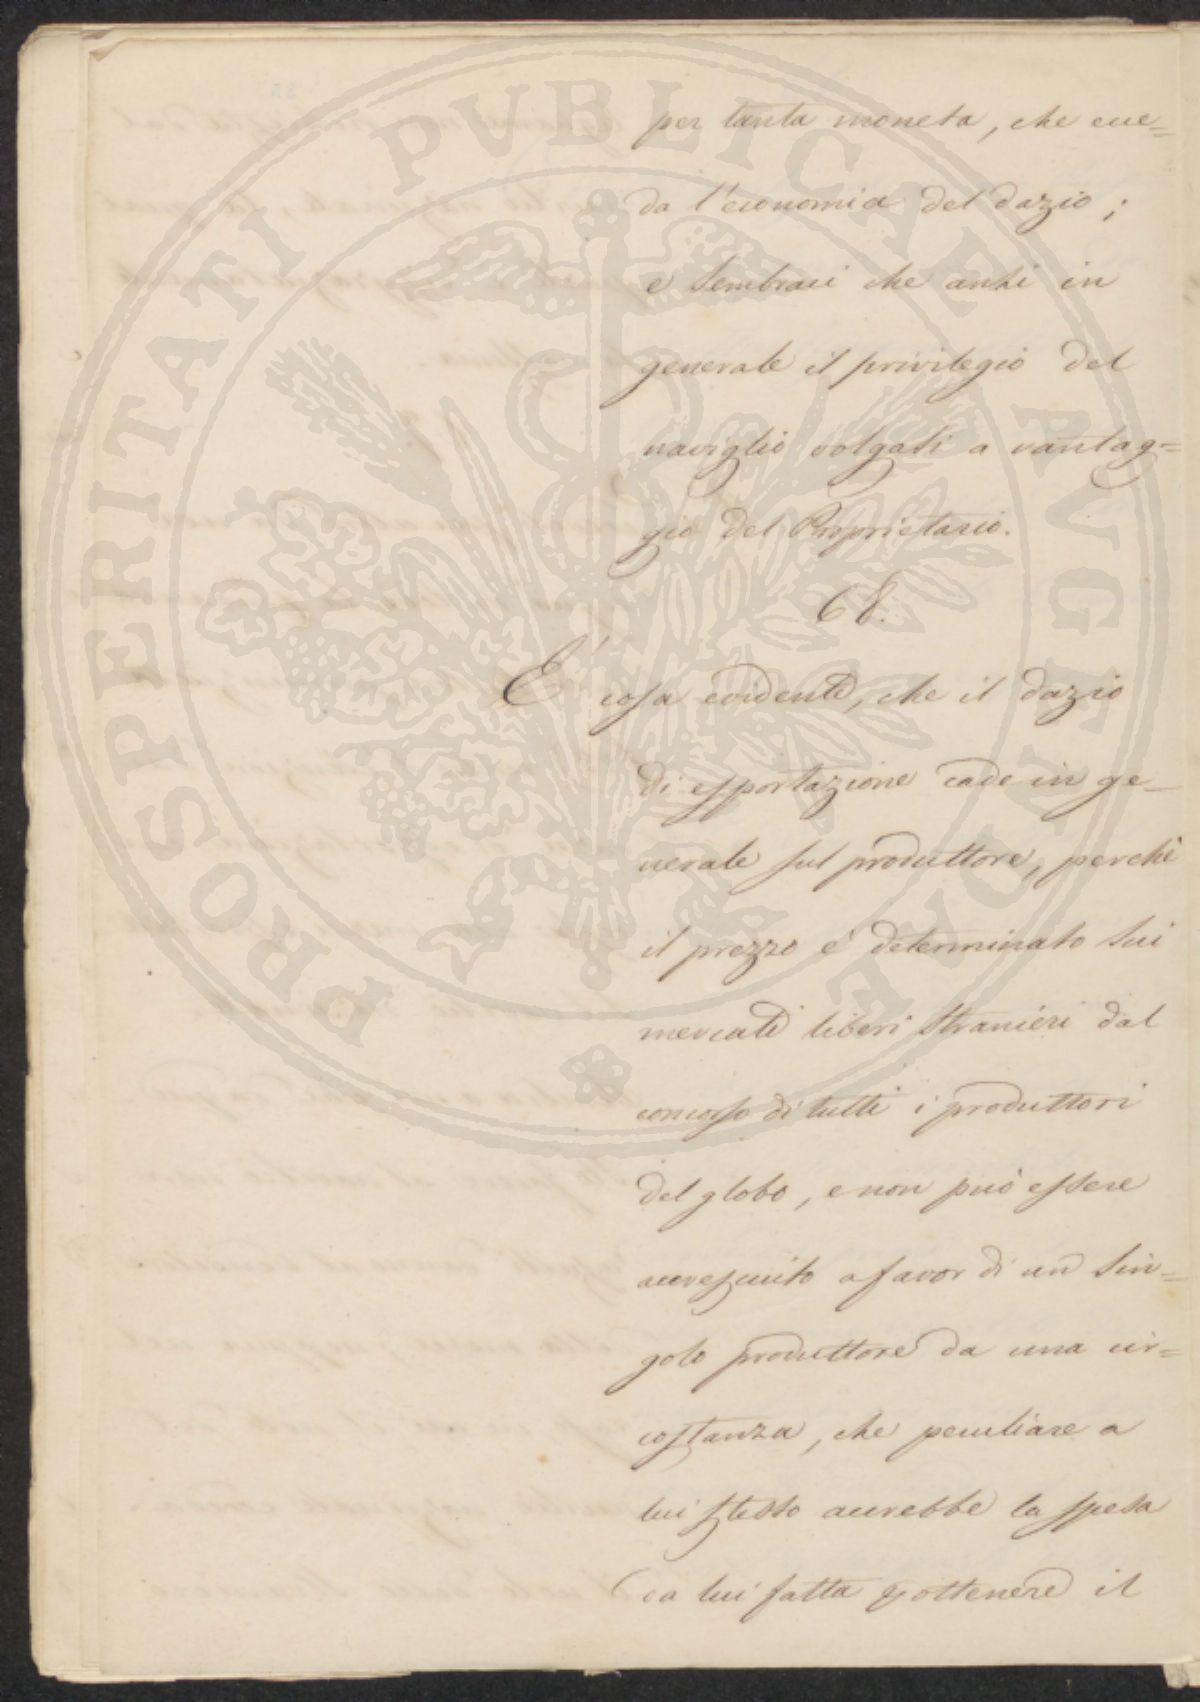 per tanta moneta, che cue=
da l'economia del dazio;
e sembraci che anzi in
generale il privilegio del
naviglio volgasi a vantag=
gio del Proprietario.
68.
E' cosa evidente, che il dazio
di esportazione cade in ge-
nerale sul produttore, perchè
il prezzo è determinato sui
mercati liberi stranieri dal
concorso di tutti i produttori
del globo, e non può essere
accresciuto a favor di un sin=
golo produttore da una cir=
costanza, che peculiare a
lui stesso accrebbe la spesa
da lui fatta p ottenere il
PROSPERITATI PUBLICAE AUGENDAE